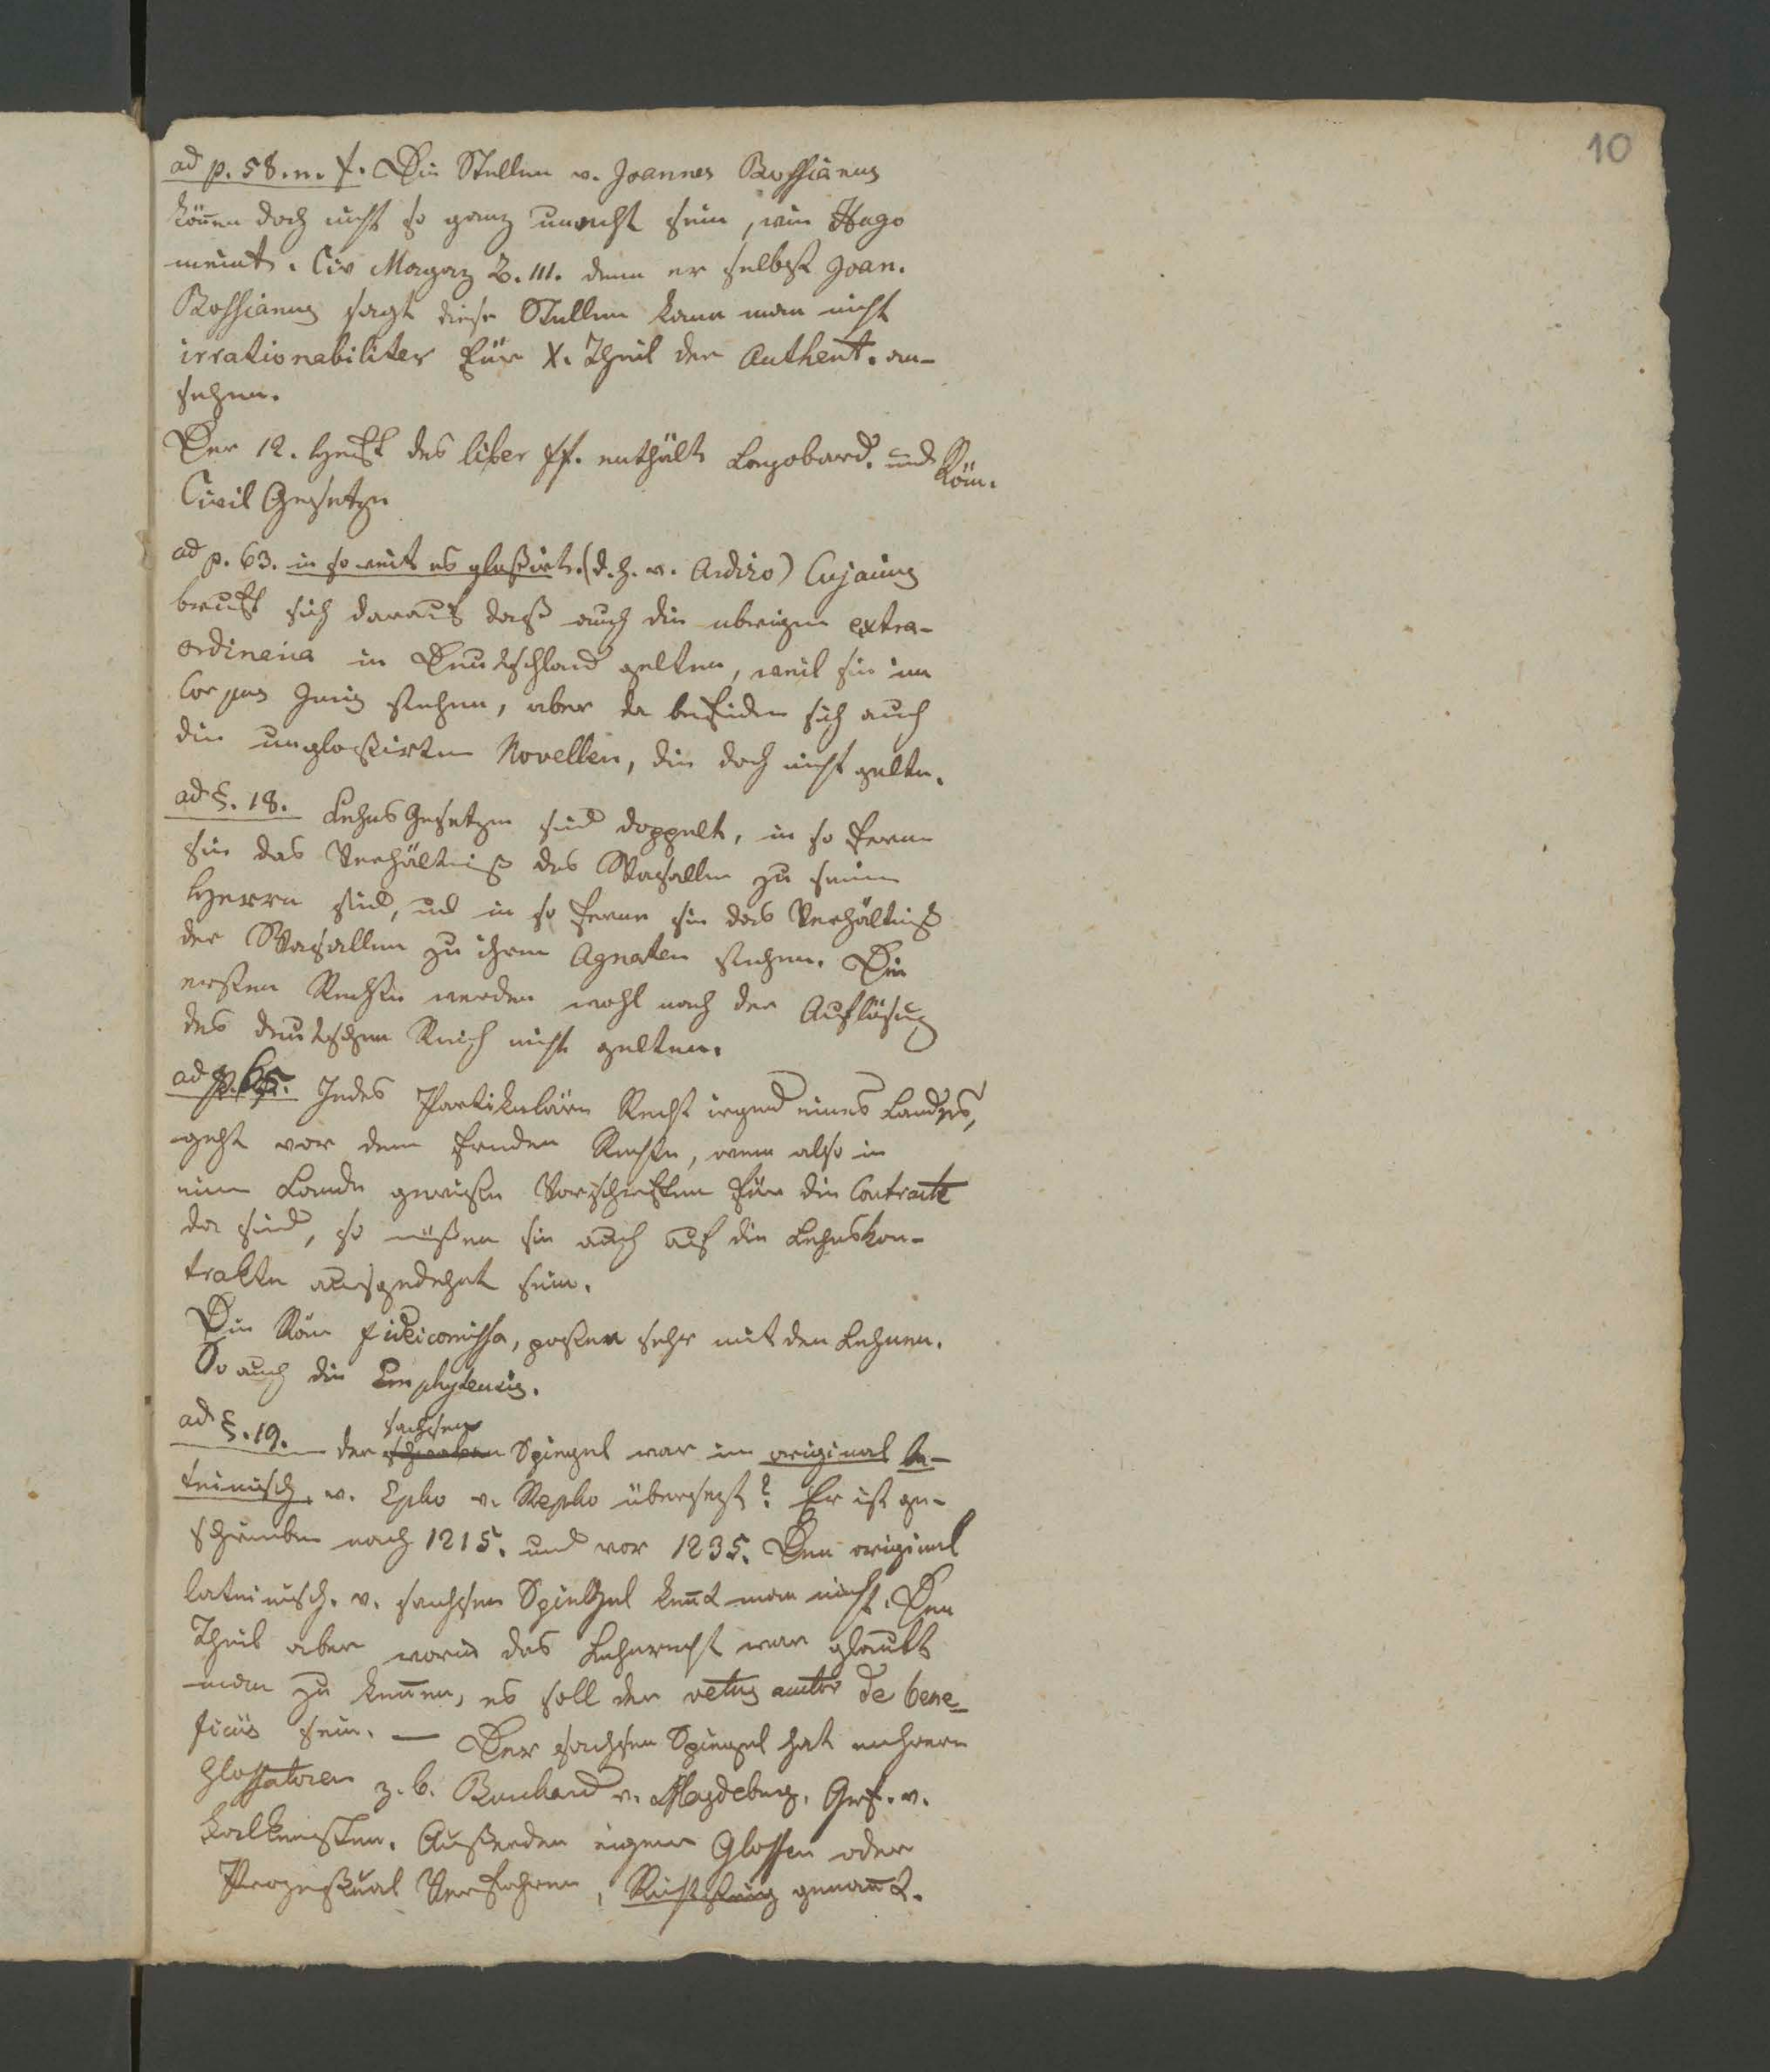 10
ad p. 58. n. f. Die Stellen v. Joannes Bassianus
können doch nicht so ganz unächt sein, wie Hugo
meint. Civ Magaz B. III. denn er selbst Joan.
Bassianus sagt diese Stellen kann man nicht
irrationabiliter für X. Theil der Authent. an-
sehen.
Der 12. Heft des liber ff. enthält Longobard. und Röm.
Civil Gesetze
ad p. 63. in so weit es gloßirt. (d. h. v. Ardizo) Cujacius
beruft sich darauf daß auch die ubrigen extra-
ordinaria in Deutschland gelten, weil sie im
Corpus Juris stehen, aber da befinden sich auch
die ungloßirten Novellen, die doch nicht gelten.
ad §. 18. Lehns Gesetze sind doppelt, in so fern
sie das Verhältniß des Vasallen zu seinem
Herrn sind, und in so ferne sie das Verhältniß
der Vasallen zu ihren Agnaten stehen. Die
ersten Rechte werden wohl nach der Auflösung
des deutschen Reich nicht gelten.
ad p. 65. Jedes Partikuläre Recht irgend eines Landes,
geht vor dem fremden Rechte, wenn also in
einem Lande gewisse Vorschriften für die Contracte
da sind, so müßen sie auch auf die Lehnskon-
trakte ausgedehnt sein.
Die Röm fideicomissa, passen sehr mit den Lehnen.
So auch die Emphyteusis.
ad §. 19. der schwaben sachsen Spiegel war im original la-
teinisch. v. Epko v. Repko übersezt? Er ist ge-
schrieben nach 1215. und vor 1235. Den original
lateinisch. v. sachsen Spielgel kennt man nicht. Den
Theil aber worin das Lehnrecht war glaubt
man zu kennen, es soll der vetus auctor de bene-
ficiis sein. — Der sachsen Spiegel hat mehrere
Glossatoren z. b. Burchard v. Magdeburg. Graf. v.
Falkenstein. Außerdem eigene Glossen oder
Prozeßual Verfahren, Richtsteig genannt.